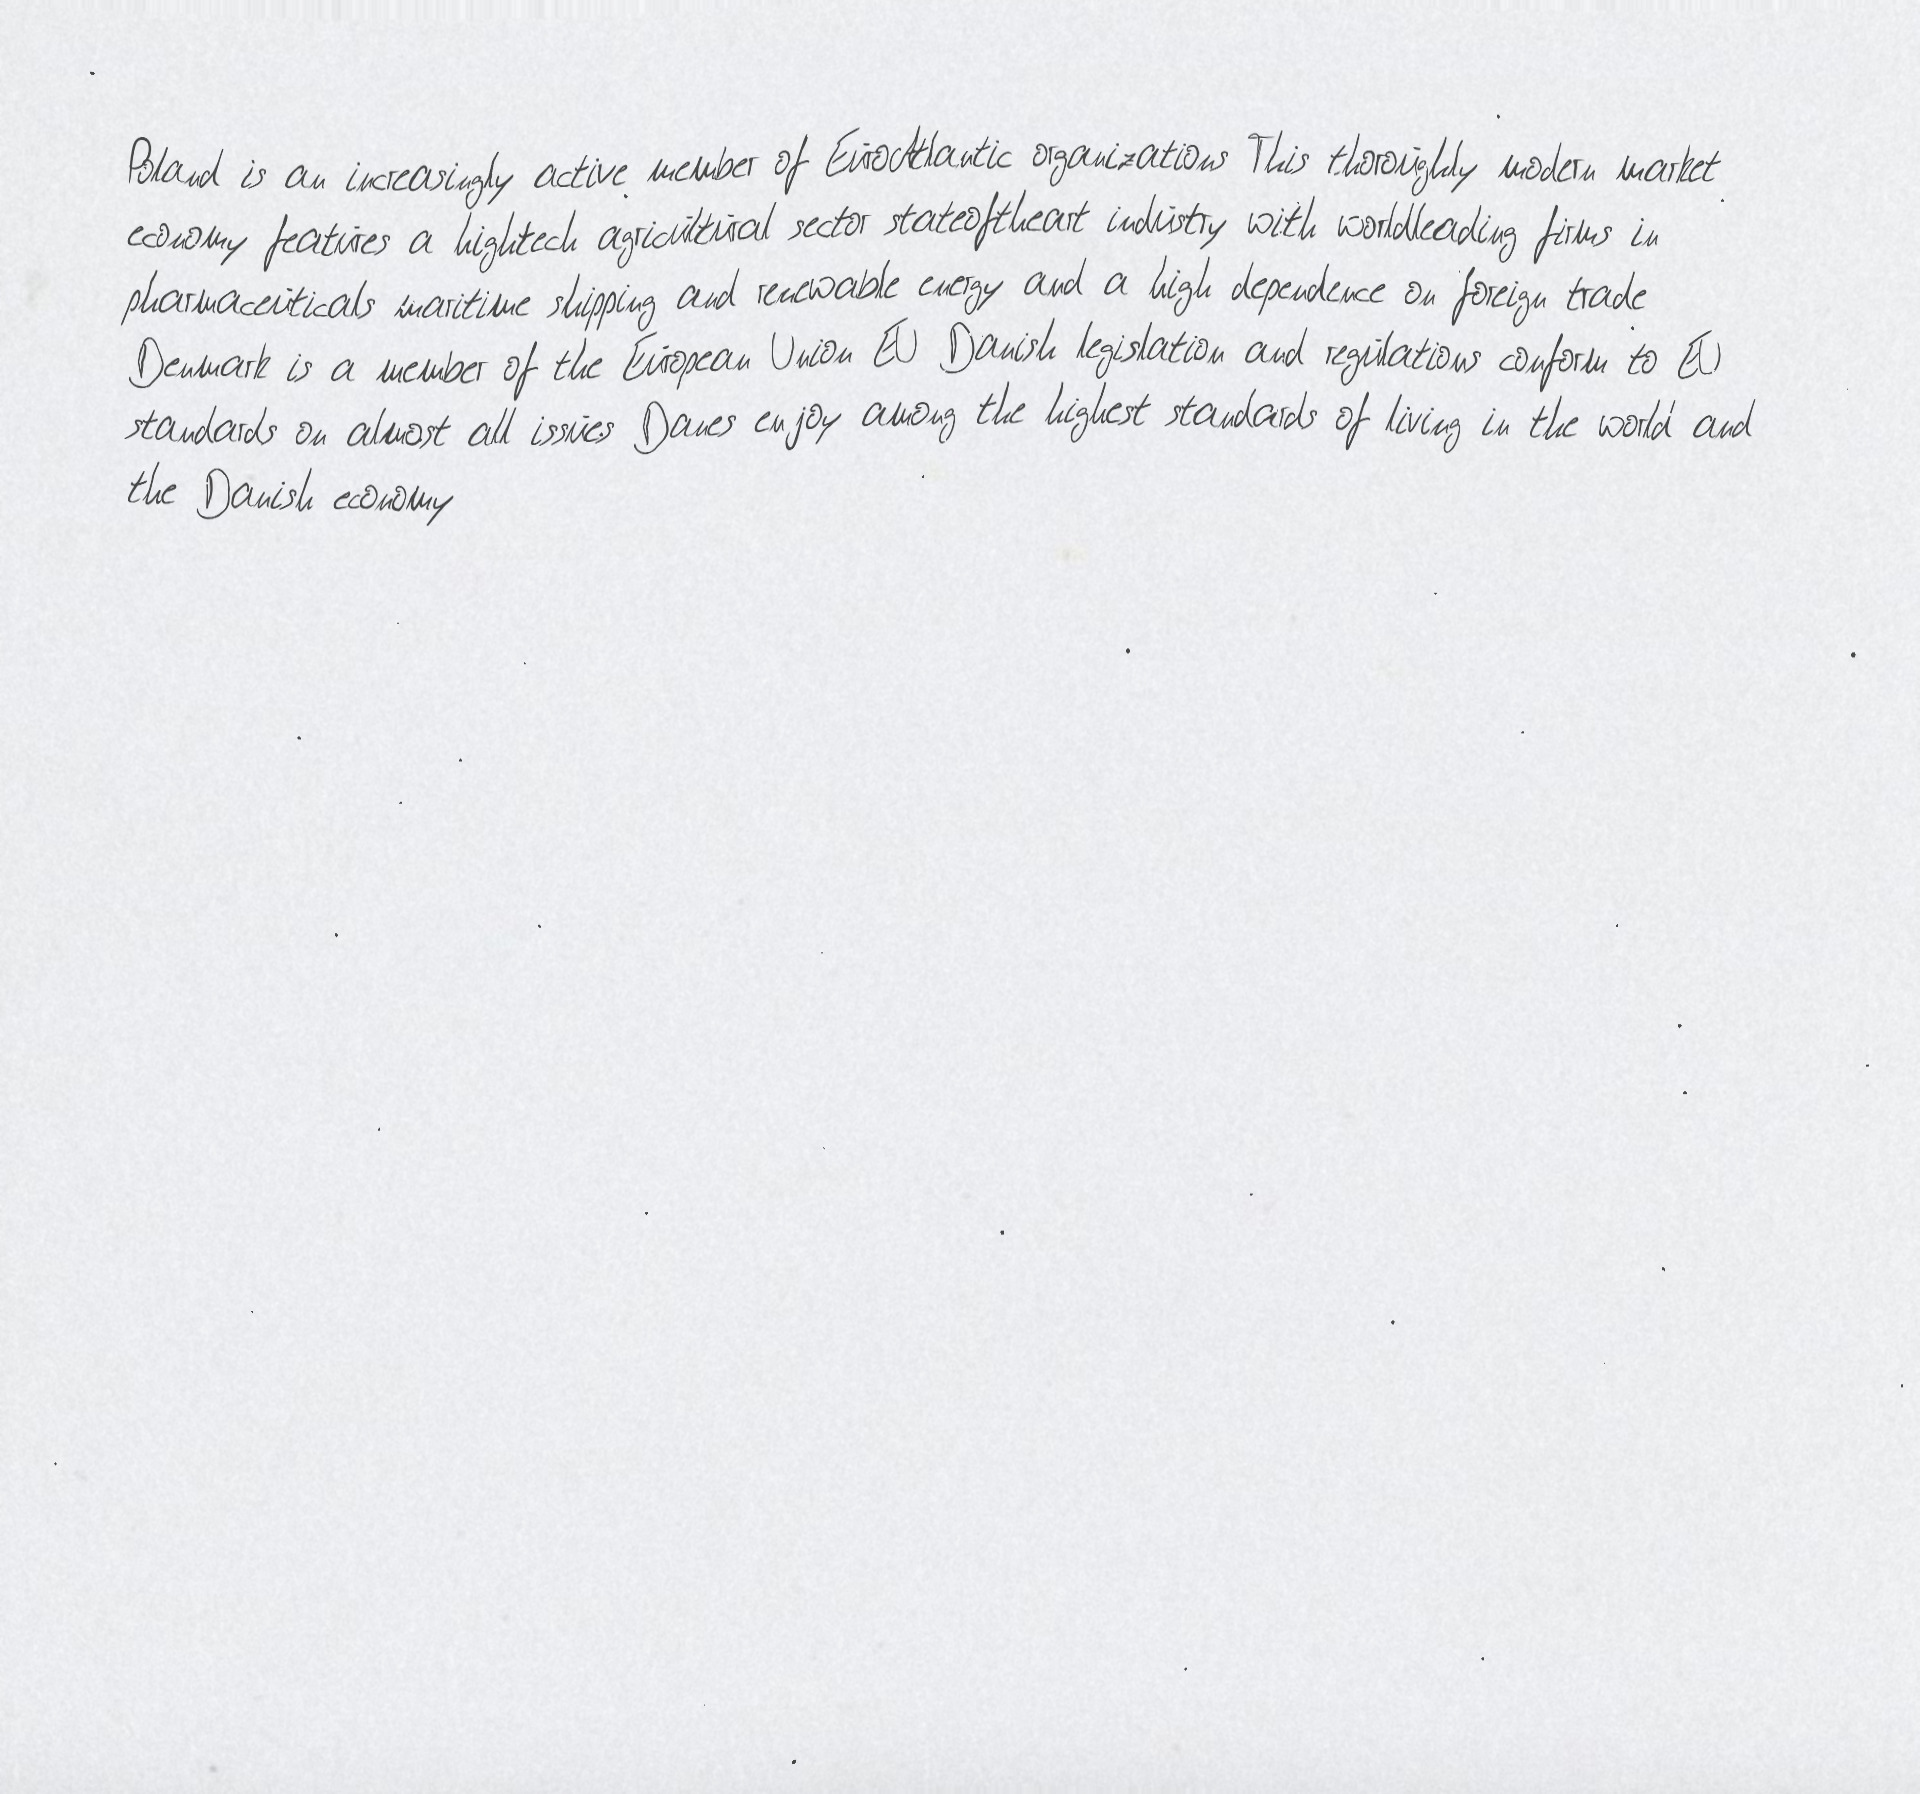 Poland is an increasingly active member of EuroAtlantic organizations This thoroughly modern market
economy features a hightech agricultural sector stateoftheart industry with worldleading firms in
pharmaceuticals maritime shipping and renewable energy and a high dependence on foreign trade
Denmark is a member of the European Union EU Danish legislation and regulations conform to EU
standards on almost all issues Danes enjoy among the highest standards of living in the world and
the Danish economy